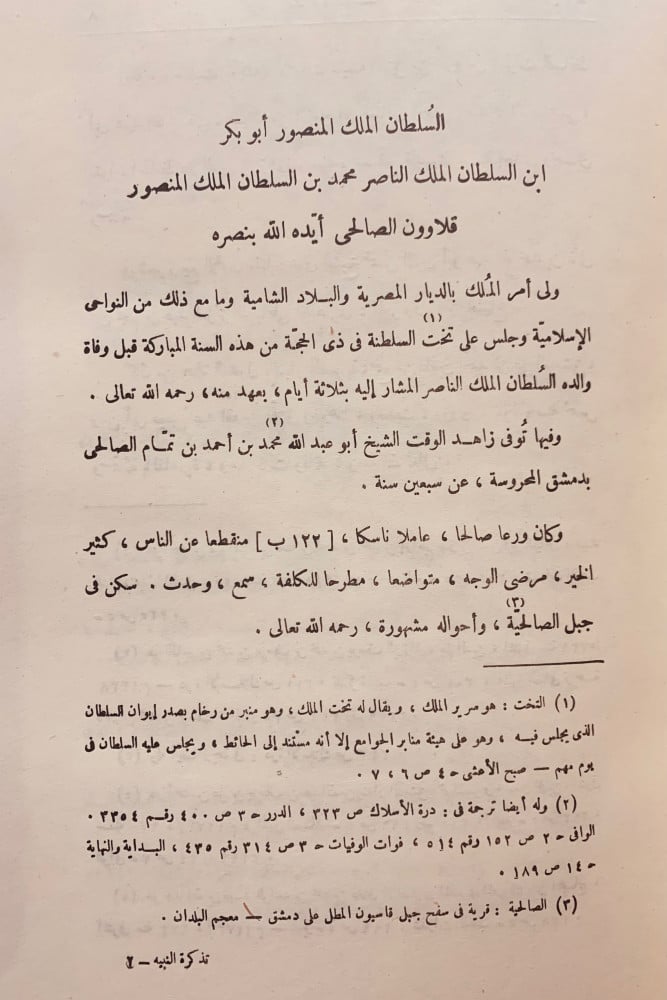 السُلطان الملك المنصور أبو بكر
ابن السلطان الملك الناصر محمد بن السلطان الملك المنصور
قلاوون الصالحى أيّده الله بنصره
ولى أمر المُلك بالديار المصرية والبـلاد الشامية وما مع ذلك من النواحى
الإسلاميّة وجلس على تخت (١) السلطنة فى ذى الحجّة من هذه السنة المباركة قبل وفاة
والده السُلطان الملك الناصر المشار إليه بثلاثة أيام، بعهد منه، رحمه الله تعالى .
وفيها تُوفى زاهـد الوقت الشيخ أبو عبد الله (٢) محمد بن أحمد بن تمّـام الصالحى
بدمشق المحروسة ، عن سبعين سنة .
وكان ورعا صالحا ، عاملا ناسكا ، [ ١٢٢ ب ] منقطعا عن الناس ، كثير
الخير ، مرضى الوجه ، متواضعا ، مطرحا للكلفة ، سمع ، وحدث . سكن فى
جبل الصالحيّة (٣) ، وأحواله مشهورة ، رحمه الله تعالى .
(١) التخت : هو سرير الملك ، ويقال له تخت الملك ، وهو منبر من رخام بصدر إيوان السلطان
الذى يجلس فيـه ، وهو على هيئة منابر الجوامع إلا أنه مستند إلى الحائط ، ويجلس عليه السلطان فى
يوم مهم — صبح الأعشى حـ ٤ ص ٦ ، ٧ .
(٢) وله أيضا ترجمة فى : درة الأسلاك ص ٣٢٣ ، الدرر حـ ٣ ص ٤٠٠ رقـم ٣٣٥٤ .
الوافى حـ ٢ ص ١٥٢ رقم ٥١٤ ، فوات الوفيات حـ ٣ ص ٣١٤ رقم ٤٣٥ ، البـداية والنهاية
حـ ١٤ ص ١٨٩ .
(٣) الصالحية : قرية فى سفح جبل قاسيون المطل على دمشق — معجم البلدان .
تذكرة النبيه — ٢